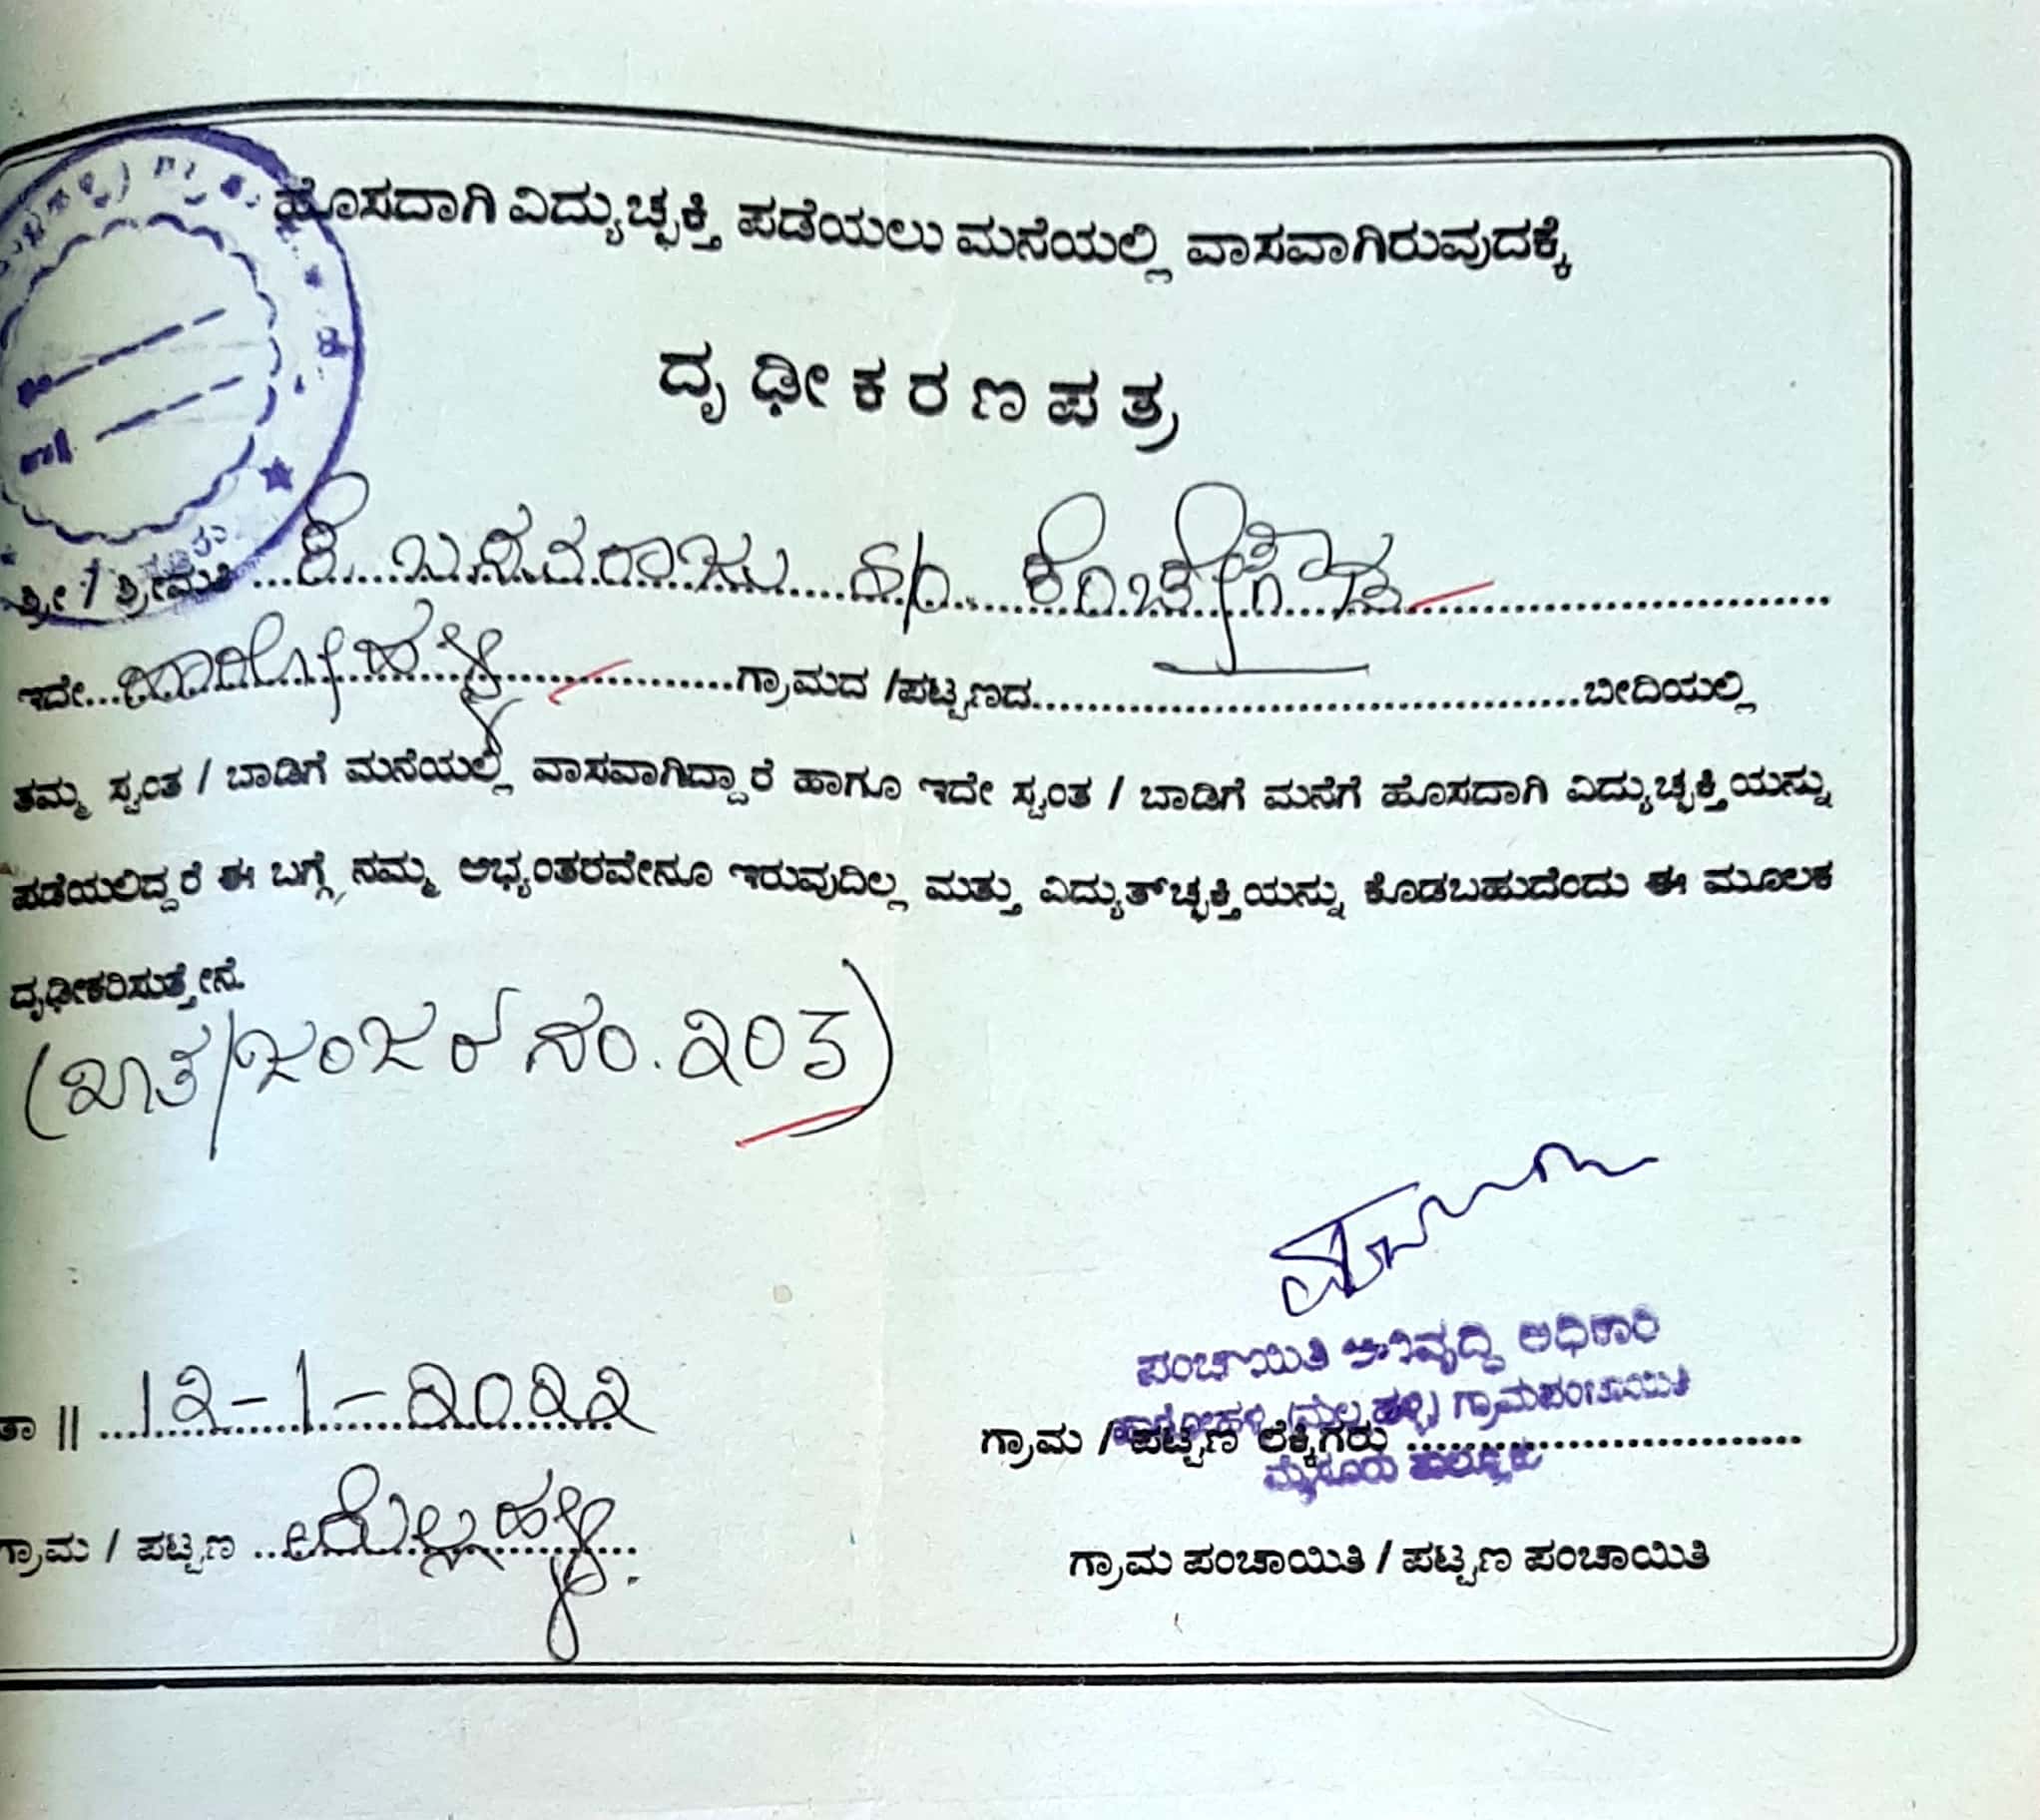 ಹೊಸದಾಗಿ ವಿದ್ಯುಚ್ಛಕ್ತಿ ಪಡೆಯಲು ಮನೆಯಲ್ಲಿ ವಾಸವಾಗಿರುವುದಕ್ಕೆ
ದೃಢೀಕರಣಪತ್ರ
ಶ್ರೀ / ಶ್ರೀಮತಿ ... ಕೆ. ಬಸವರಾಜು S/o. ಕೆಂಚೇಗೌಡ ...
ಇದೇ... ಹಾರೋಹಳ್ಳಿ ...ಗ್ರಾಮದ /ಪಟ್ಟಣದ...ಬೀದಿಯಲ್ಲಿ
ತಮ್ಮ ಸ್ವಂತ / ಬಾಡಿಗೆ ಮನೆಯಲ್ಲಿ ವಾಸವಾಗಿದ್ದಾರೆ ಹಾಗೂ ಇದೇ ಸ್ವಂತ / ಬಾಡಿಗೆ ಮನೆಗೆ ಹೊಸದಾಗಿ ವಿದ್ಯುಚ್ಛಕ್ತಿಯನ್ನು
ಪಡೆಯಲಿದ್ದರೆ ಈ ಬಗ್ಗೆ ನಮ್ಮ ಅಭ್ಯಂತರವೇನೂ ಇರುವುದಿಲ್ಲ ಮತ್ತು ವಿದ್ಯುತ್‌ಚ್ಛಕ್ತಿಯನ್ನು ಕೊಡಬಹುದೆಂದು ಈ ಮೂಲಕ
ದೃಢೀಕರಿಸುತ್ತೇನೆ.
(ಖಾತೆ/ಜಂಜರ್ ನಂ. ೩೦೩)
ಪಂಚಾಯಿತಿ ಅಭಿವೃದ್ಧಿ ಅಧಿಕಾರಿ
ತಾ || ... 12-1-2022
ಹಾರೋಹಳ್ಳಿ (ಮೆಲ್ಲಹಳ್ಳಿ) ಗ್ರಾಮಪಂಚಾಯಿತಿ
ಗ್ರಾಮ / ಪಟ್ಟಣ ಲೆಕ್ಕಿಗರು ...
ಮೈಸೂರು ತಾಲ್ಲೂಕು
ಗ್ರಾಮ / ಪಟ್ಟಣ ... ಮೆಲ್ಲಹಳ್ಳಿ.
ಗ್ರಾಮ ಪಂಚಾಯಿತಿ / ಪಟ್ಟಣ ಪಂಚಾಯಿತಿ